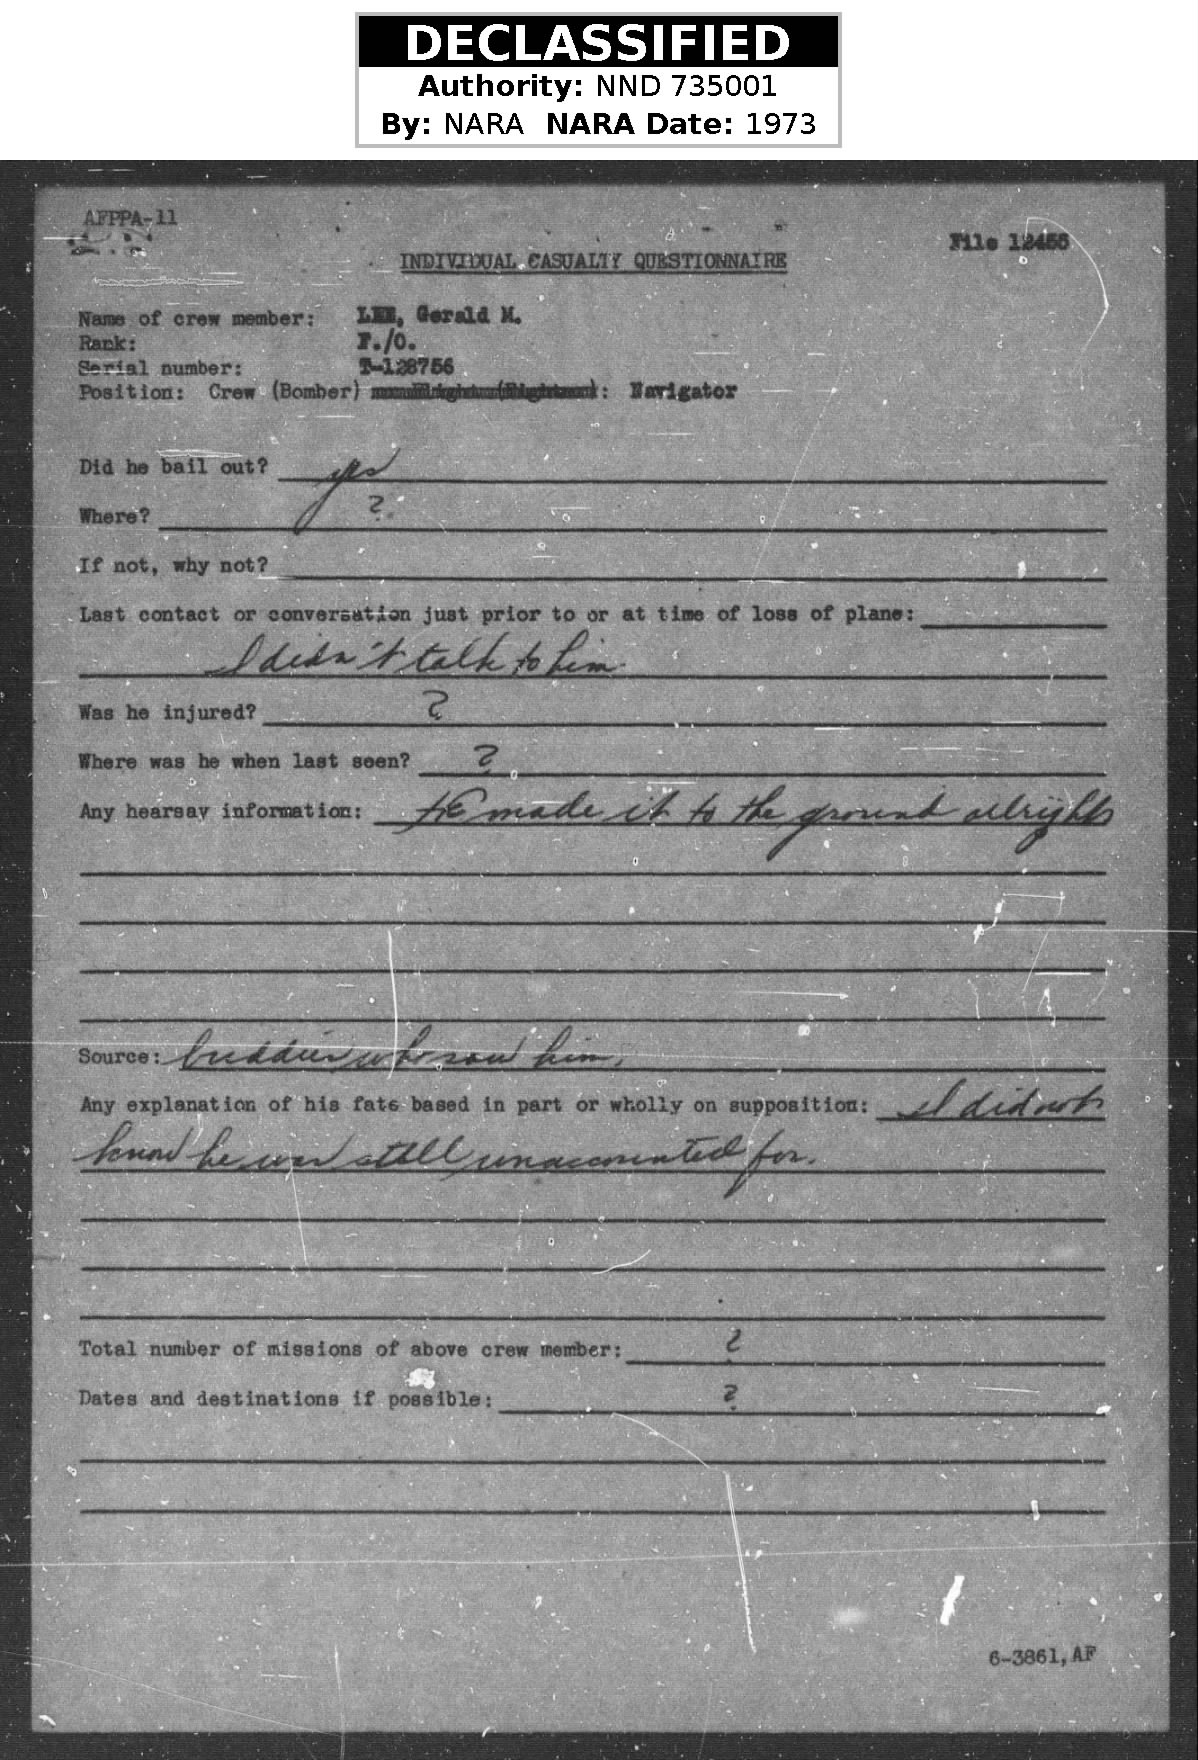 DECLASSIFIED
Authority: NND 735001
By: NARA NARA Date: 1973
AFPPA-11
File 12455
INDIVIDUAL CASUALTY QUESTIONNAIRE
Name of crew member: LEE, Gerald M.
Rank: F./O.
Serial number: T-128756
Position: Crew (Bomber) : Navigator
Did he bail out? yes
Where? ?
If not, why not?
Last contact or conversation just prior to or at time of loss of plane:
I didn't talk to him.
Was he injured? ?
Where was he when last seen? ?
Any hearsay information: HE made it to the ground allright
Source: buddies who saw him.
Any explanation of his fate based in part or wholly on supposition: I did not
know he was still unaccounted for.
Total number of missions of above crew member: ?
Dates and destinations if possible: ?
6-3861, AF